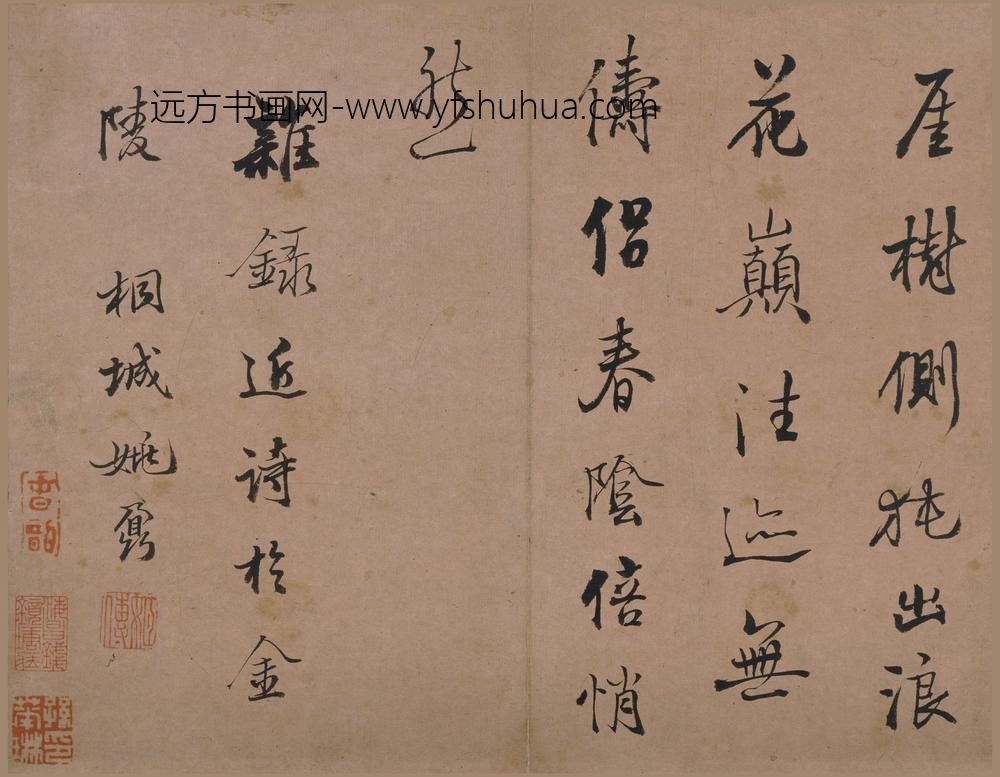 厓樹側犹出浪
花巔注迹無
儔侶春陰倍悄
然
雜錄近诗於金
陵
桐城姚鼐
远方书画网-www.yfshuhua.com